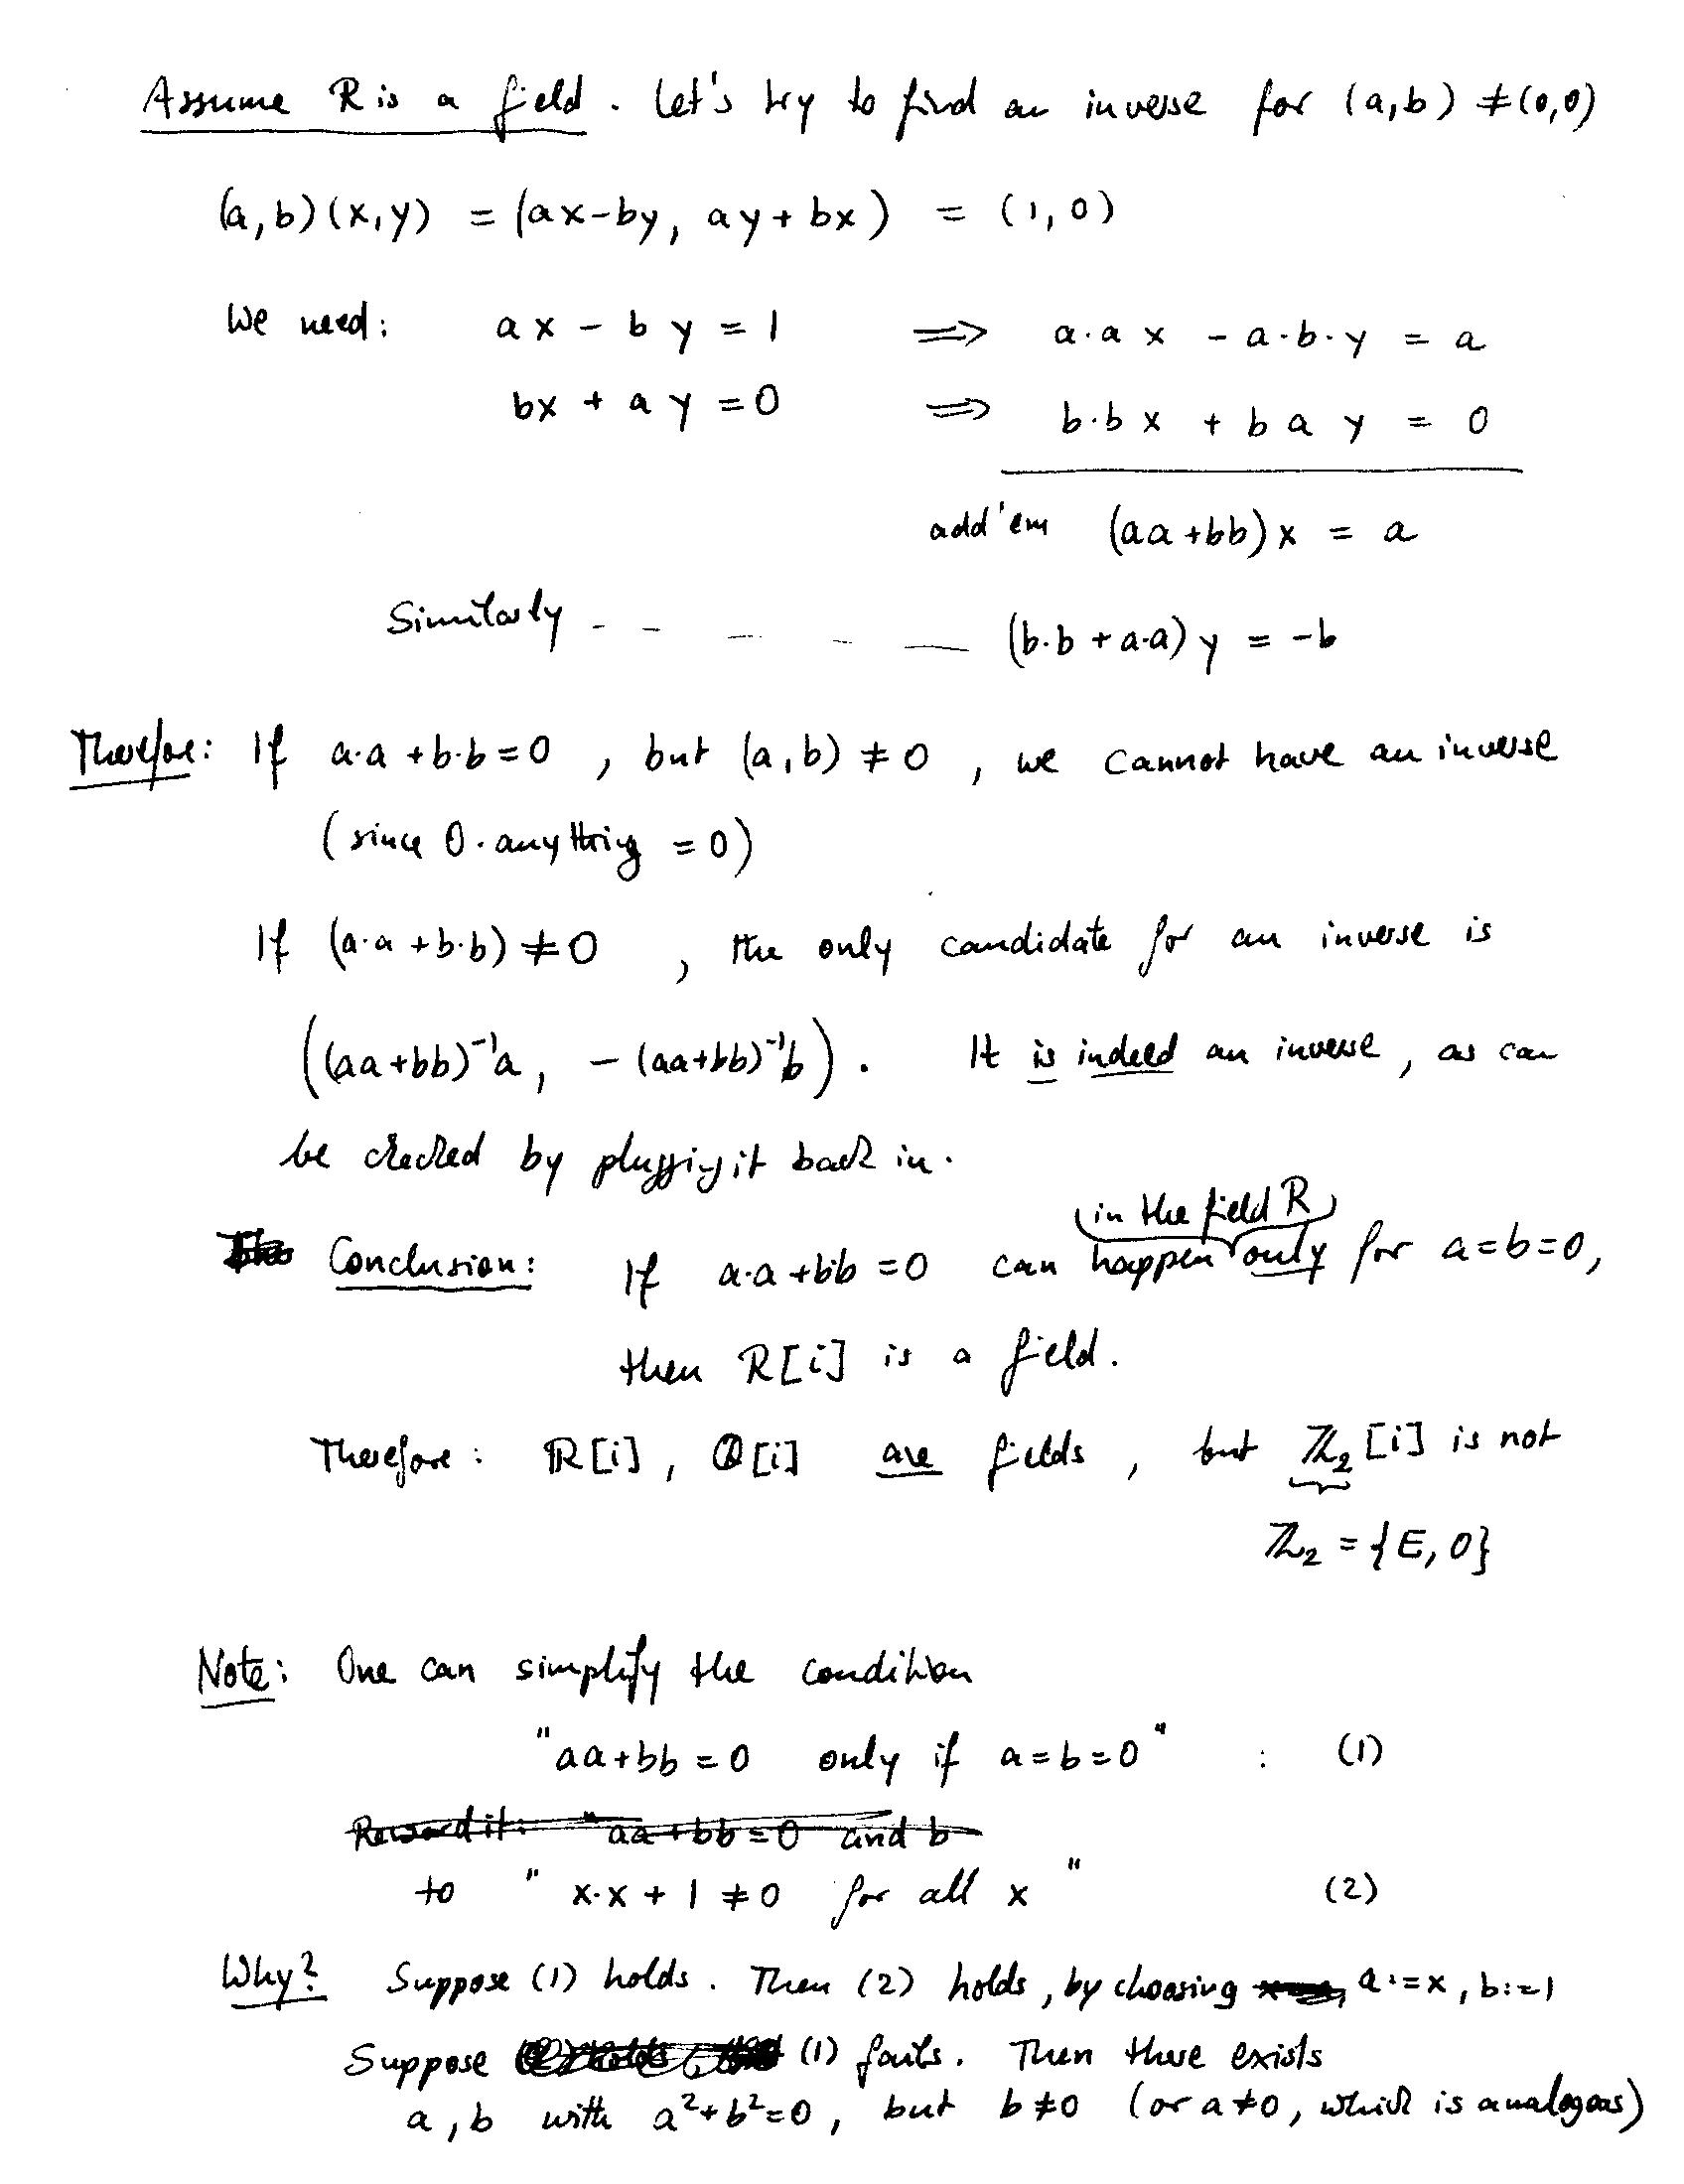 Assume R is a field. Let's try to find an inverse for (a,b) ≠ (0,0)
(a,b)(x,y) = (ax-by, ay+bx) = (1,0)
We need: ax - by = 1 ⟹ a·a x - a·b·y = a
bx + ay = 0 ⟹ b·b x + b a y = 0
add 'em (aa+bb)x = a
Similarly - - - - — (b·b + a·a) y = -b
Therefore: If a·a + b·b = 0, but (a,b) ≠ 0, we cannot have an inverse
(since 0·anything = 0)
If (a·a + b·b) ≠ 0, the only candidate for an inverse is
((aa+bb)⁻¹a, -(aa+bb)⁻¹b). It is indeed an inverse, as can
be checked by plugging it back in.
in the field R
Conclusion: If a·a + bb = 0 can happen only for a=b=0,
then R[i] is a field.
Therefore: ℝ[i], ℚ[i] are fields, but ℤ₂[i] is not
ℤ₂ = {E, O}
Note: One can simplify the condition
"aa+bb = 0 only if a=b=0" : (1)
Reword it: "aa+bb=0 and b
to "x·x + 1 ≠ 0 for all x" (2)
Why? Suppose (1) holds. Then (2) holds, by choosing a:=x, b:=1
Suppose (1) fails. Then there exists
a, b with a²+b²=0, but b≠0 (or a≠0, which is analogous)